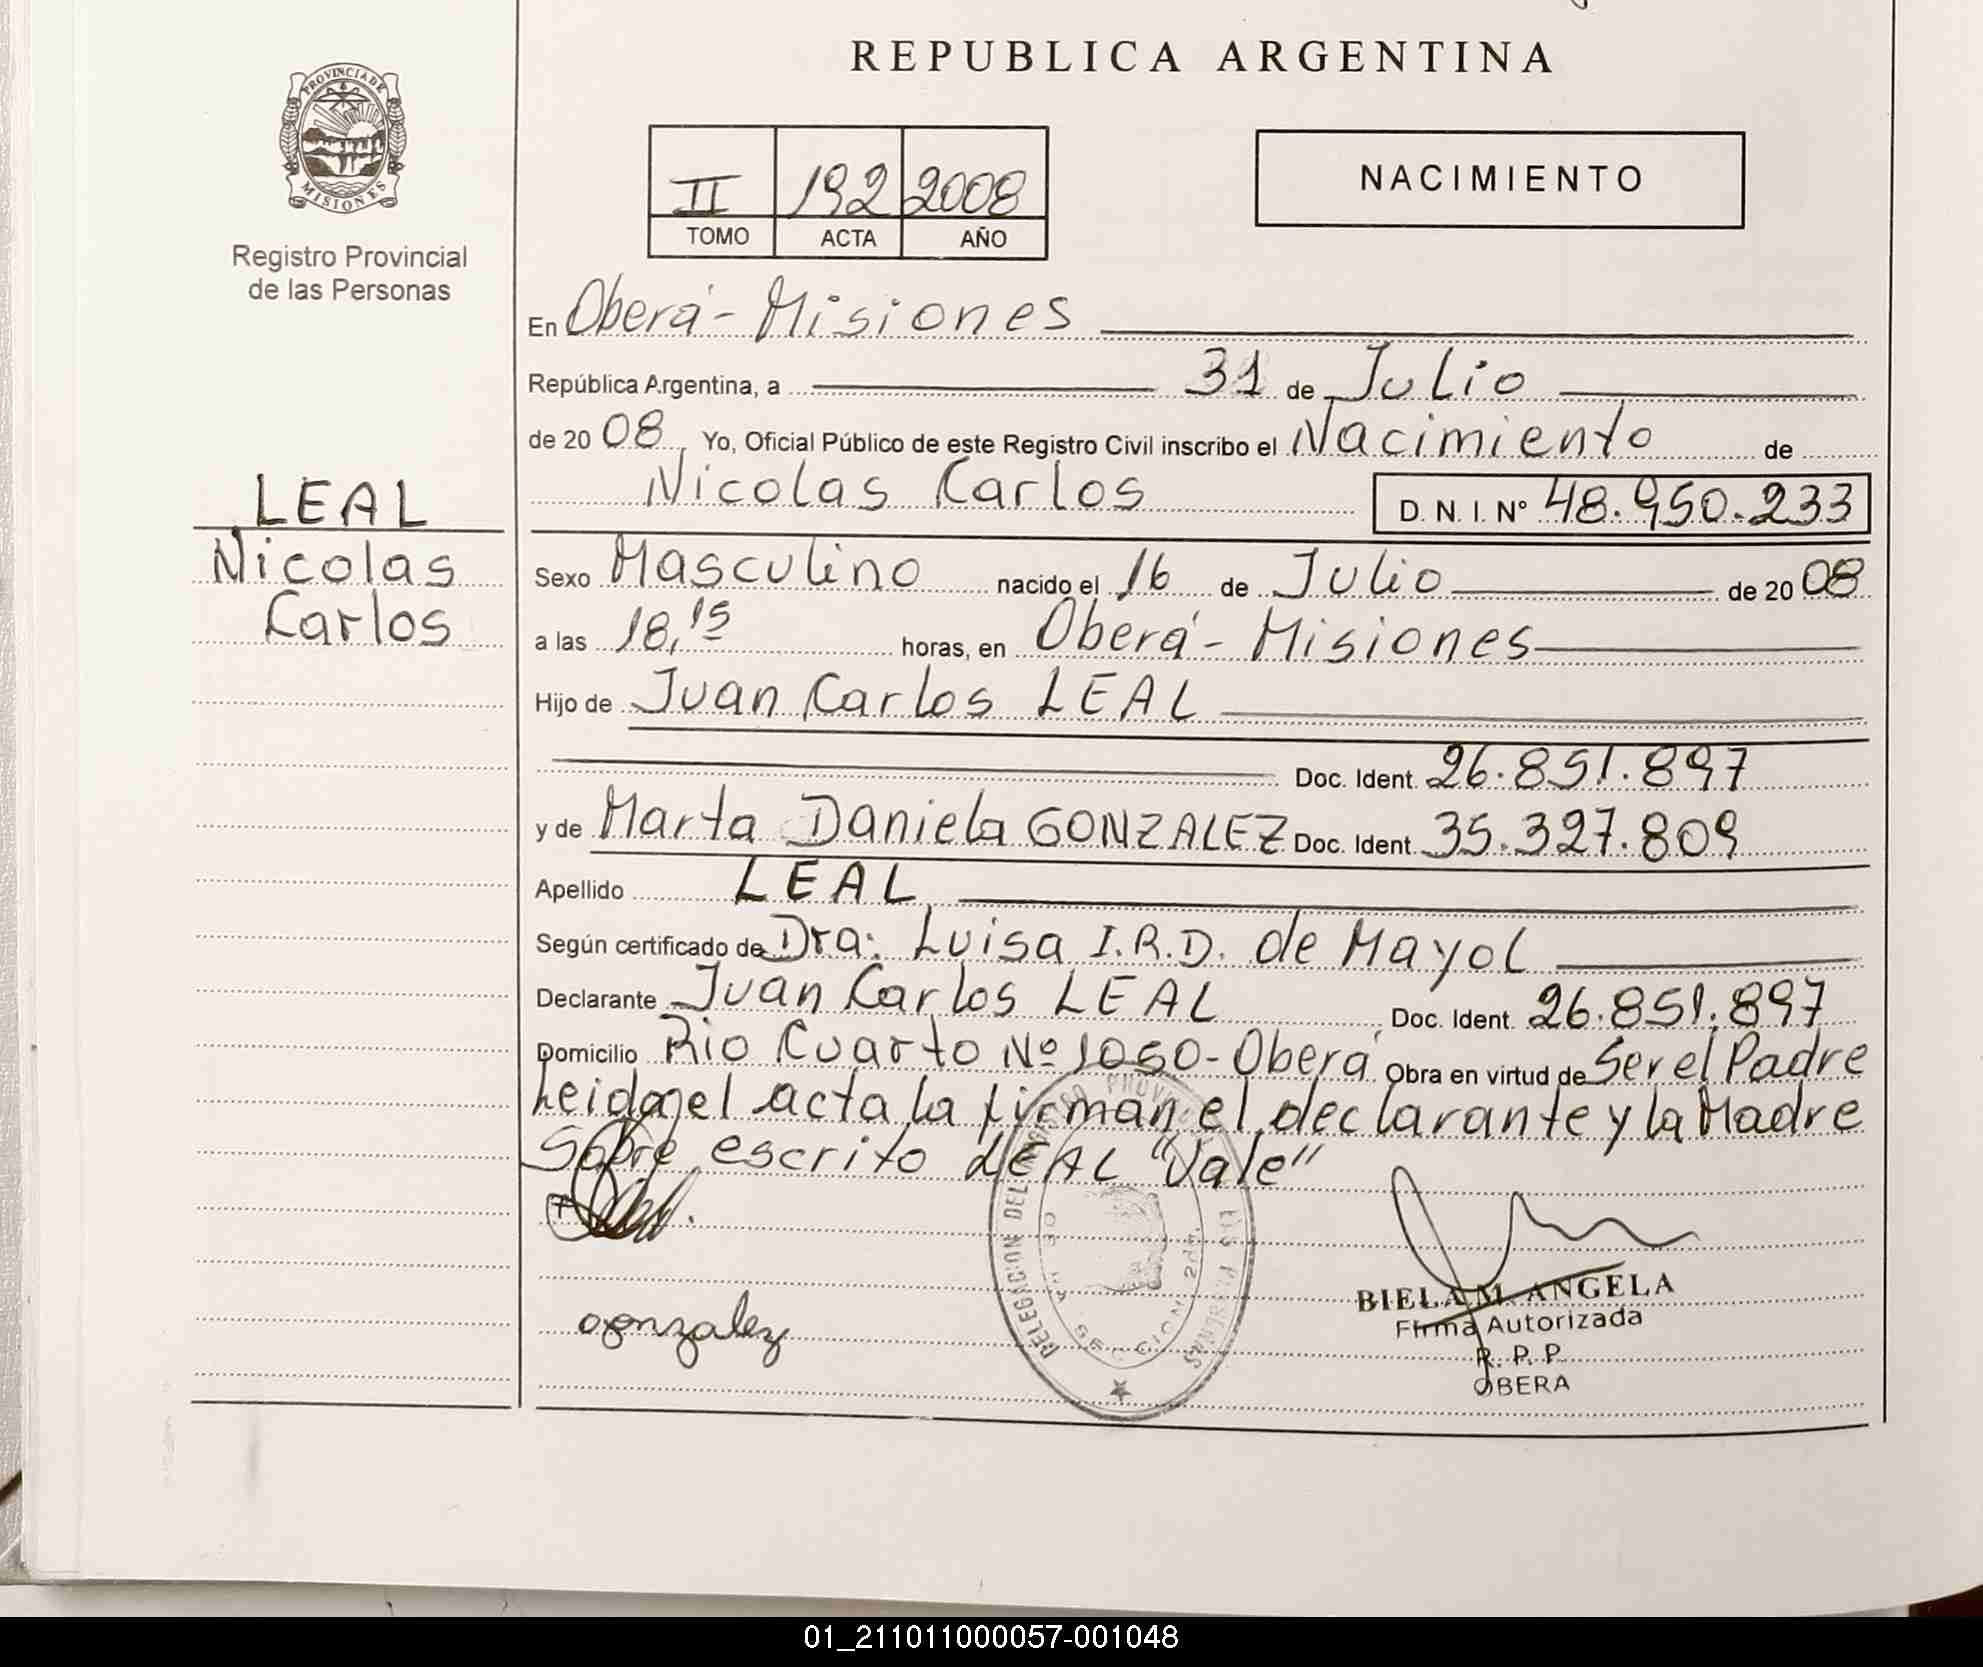 REPUBLICA ARGENTINA
PROVINCIA DE
MISIONES
Registro Provincial
de las Personas
II 192 2008
TOMO ACTA AÑO
NACIMIENTO
En Oberá - Misiones
República Argentina, a 31 de Julio
de 20 08 Yo, Oficial Público de este Registro Civil inscribo el Nacimiento de
Nicolas Carlos D. N. I. Nº 48.950.233
LEAL
Nicolas
Carlos
Sexo Masculino nacido el 16 de Julio de 20 08
a las 18,15 horas, en Oberá - Misiones
Hijo de Juan Carlos LEAL
Doc. Ident. 26.851.897
y de Marta Daniela GONZALEZ Doc. Ident. 35.327.809
Apellido LEAL
Según certificado de Dra: Luisa I.R.D. de Mayol
Declarante Juan Carlos LEAL Doc. Ident. 26.851.897
Domicilio Rio Cuarto Nº 1050 - Oberá Obra en virtud de Ser el Padre
Leida el acta la firman el declarante y la Madre
Sobre escrito LEAL "Vale"
gonzalez
DELEGACION DEL REGISTRO PROVINCIAL DE LAS PERSONAS
SECCION 2da.
BIELA M. ANGELA
Firma Autorizada
R. P. P.
OBERA
01_211011000057-001048